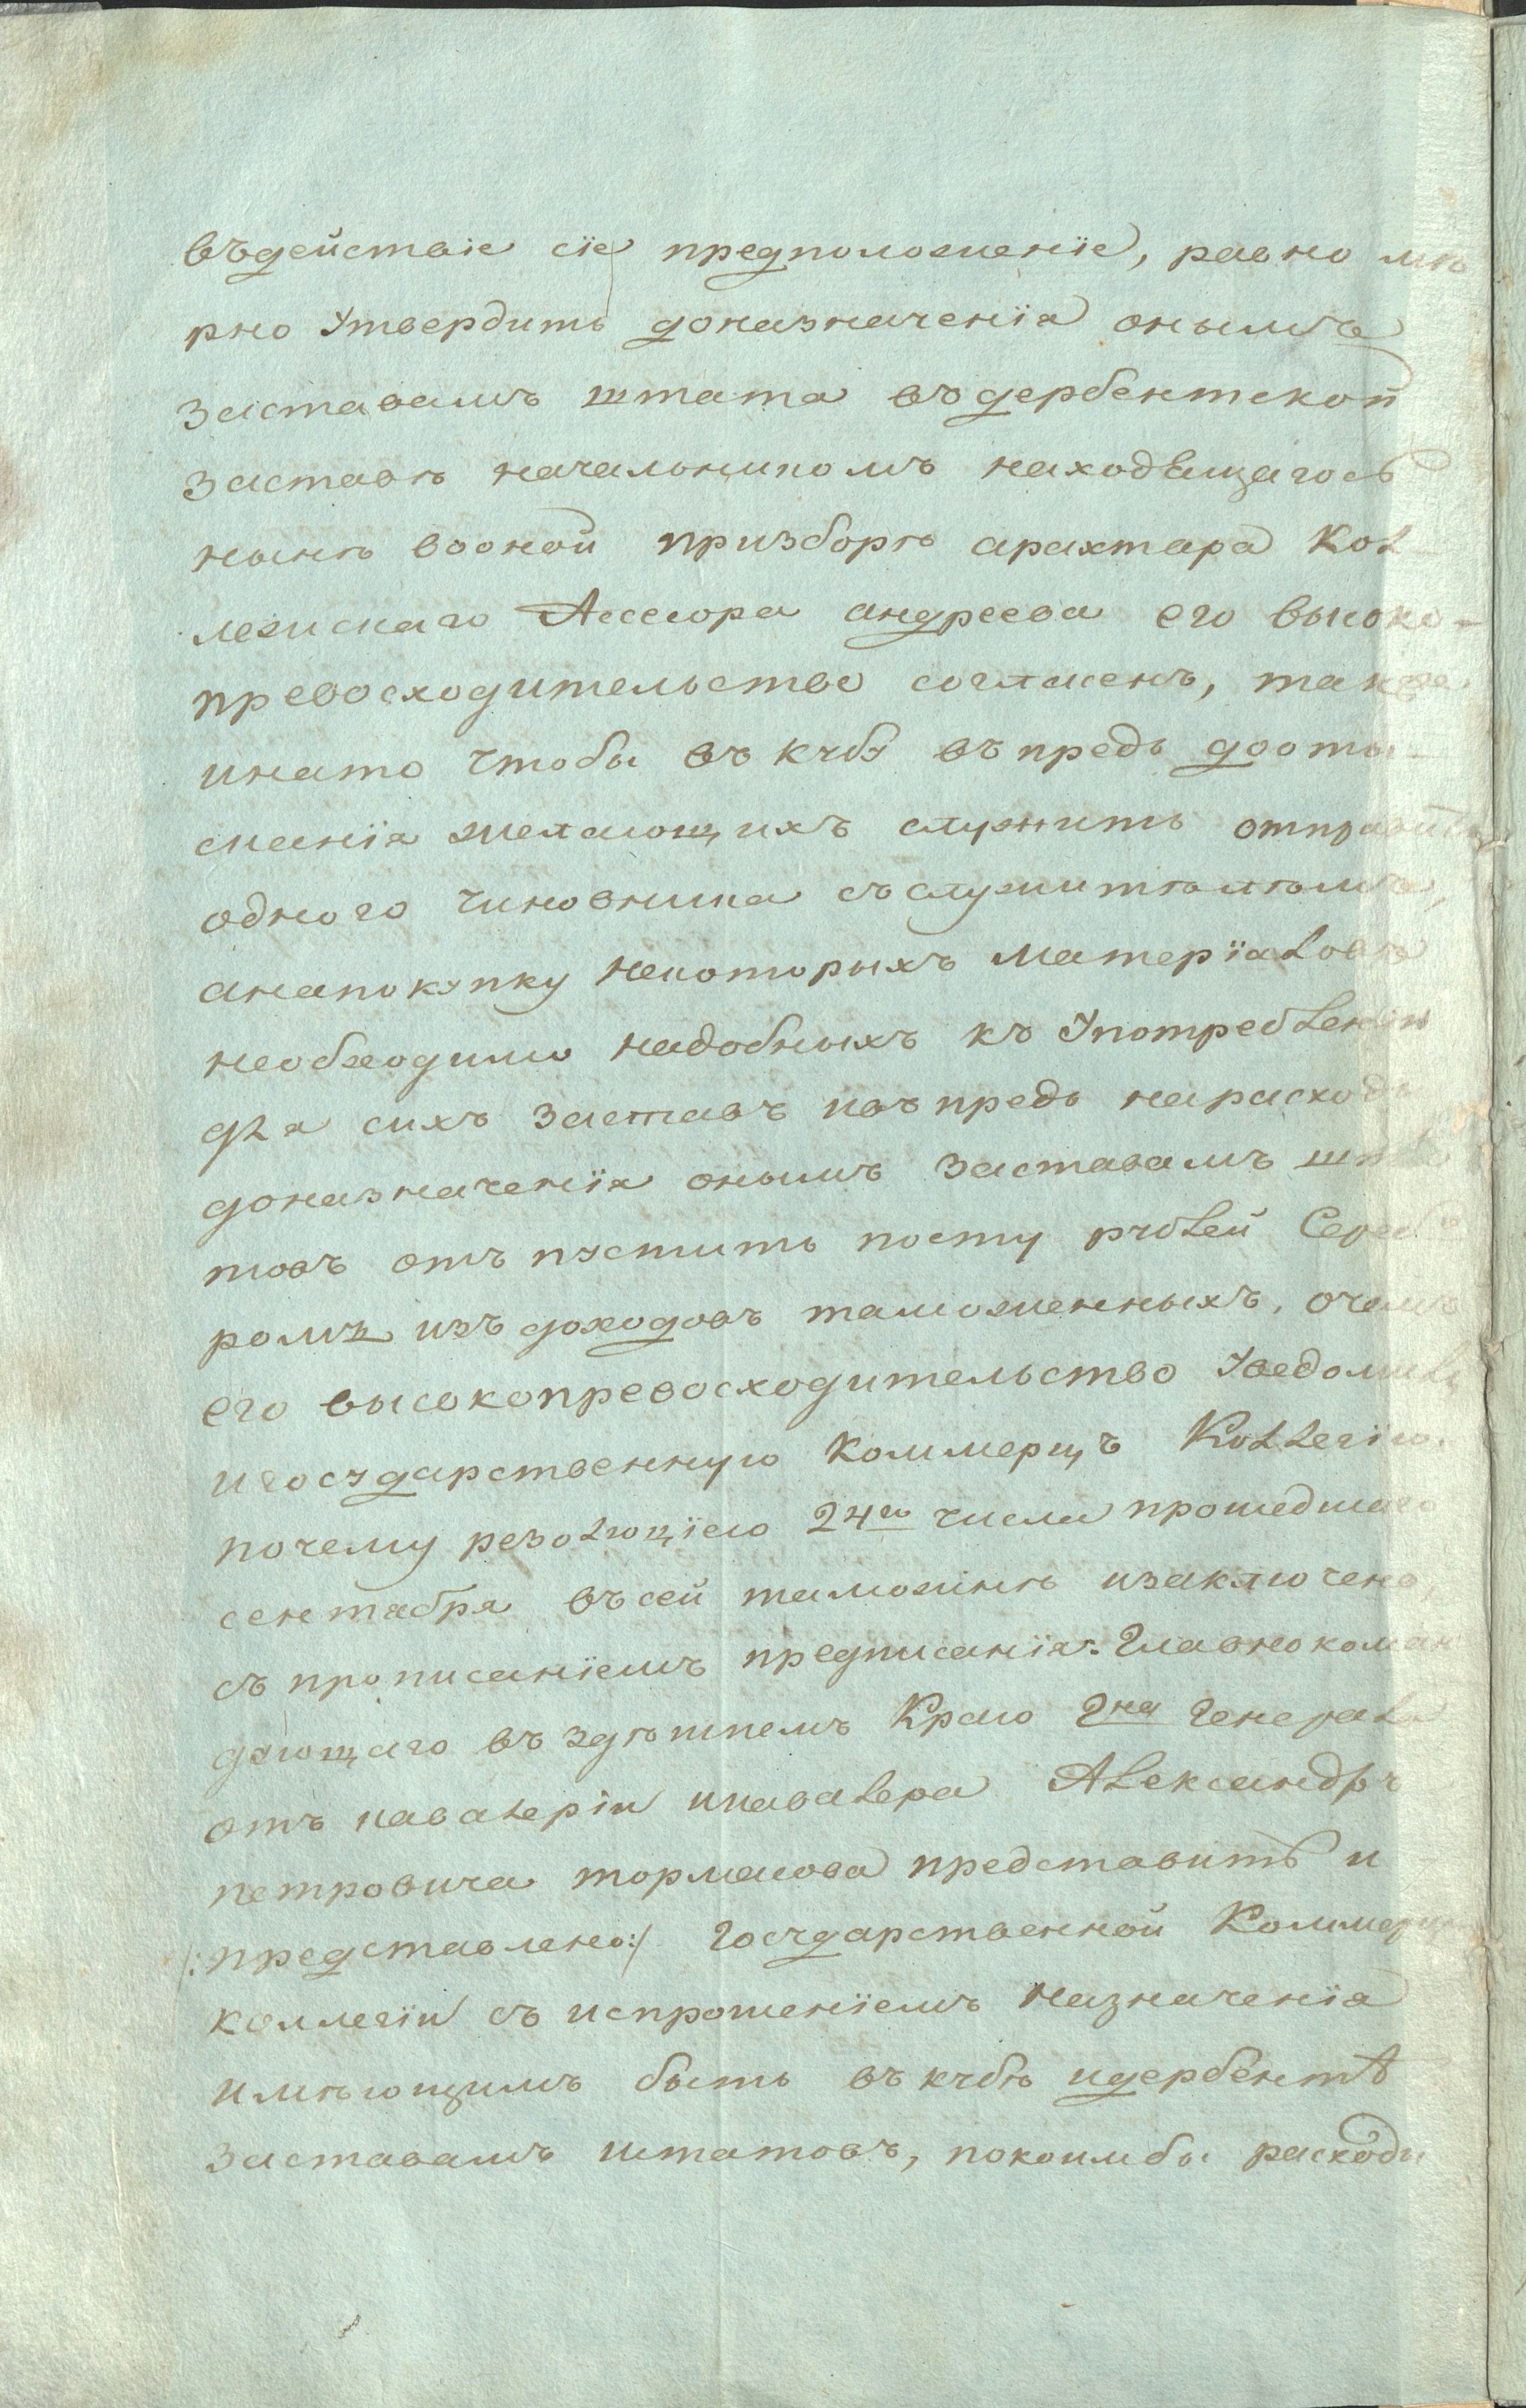 въдействіе сїе предположенїе, равно мѣ
рно Утвердить доназначенїя онымъ
заставамъ штата въдербентской
заставѣ началникомъ находящагось
нынѣ воонои призборѣ арахтара Кол-
лежскаго Ассесора андреева его высоко-
превосходительство согласенъ, также
инато чтобы въ кубѣ въпредь дооты-
сканїя желающихъ служить отправить
одного чиновника съслужителемъ,
анапокупку некоторыхъ Материїаловъ
необходимо надобныхъ къ Употребленїю
для сихъ заставъ ивъпредь нарасходъ
доназначенїя онымъ заставамъ шта
товъ отъпустить посту рублей Сереб
ромъ изъ доходовъ таможенныхъ, очемъ
его высокопревосходительство Уведомилъ
игосударственную Коммерцъ Коллегїю.
почему резолюцїею 24го числа прошедшаго
сентября въсей таможнѣ изаключено
съ прописанїемъ предписанїя: Главнокоман
дующаго въ здѣшнемъ Краю Гна Генерала
отъ кавалерїи икавалера Александръ
петровича тормасова представить и
/:представлено:/ Государственной Коммерцъ
коллегїи съ испрошенїемъ назначенїя
имѣющимъ быть въ кубѣ идербентѣ
заставамъ штатовъ, покоимбы расходы